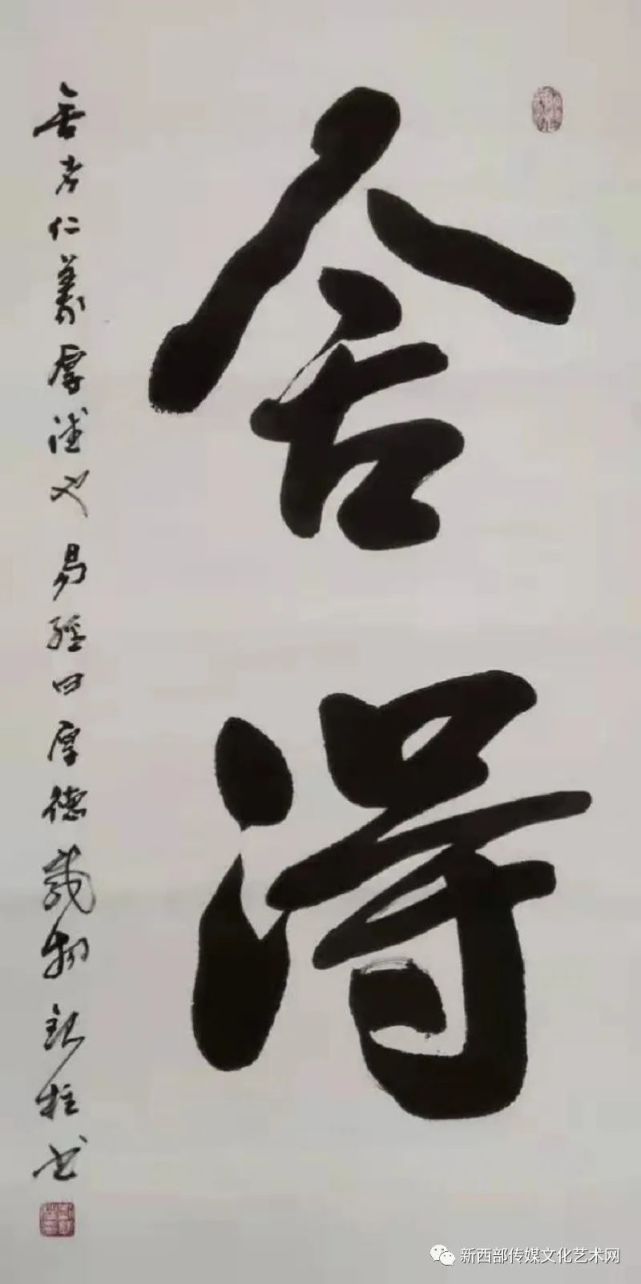 舍得
舍者仁義厚德也易經曰厚德載物銀柱书
新西部传媒文化艺术网